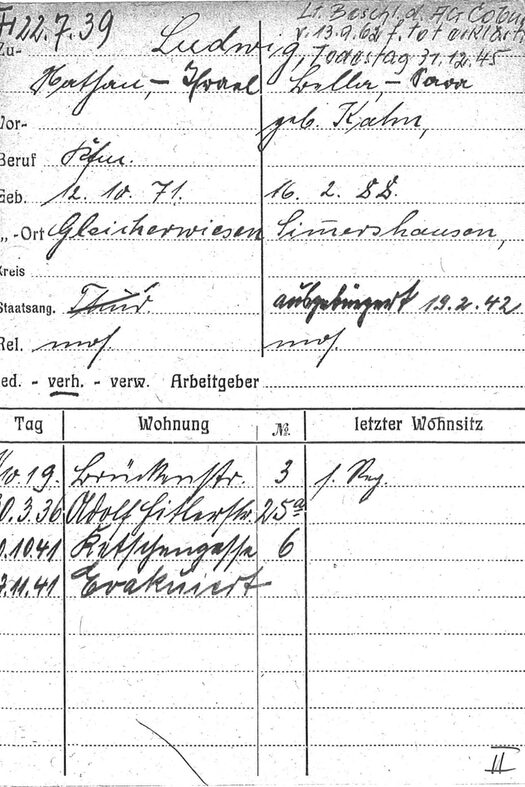 22.7.39
Lt. Beschl. d. AG Cobu
v. 13.9.62 f. tot erklärt
Todestag 31.12.45
Zu- Ludwig,
Nathan, - Israel Bella, - Sara
Vor- geb. Kahn,
Beruf Kfm.
Geb. 12. 10. 71. 16. 2. 82.
„ -Ort Gleicherwiesen Simershausen,
Kreis
Staatsang. Thür. ausgebürgert 19.2.42
Rel. mos. mos.
ed. - verh. - verw. Arbeitgeber
Tag Wohnung № letzter Wohnsitz
10 19. Brückenstr. 3 s. Reg.
0.3.36 Adolf Hitlerstr. 25a
.10 41 Ketschengasse 6
7.11.41 Evakuiert
II